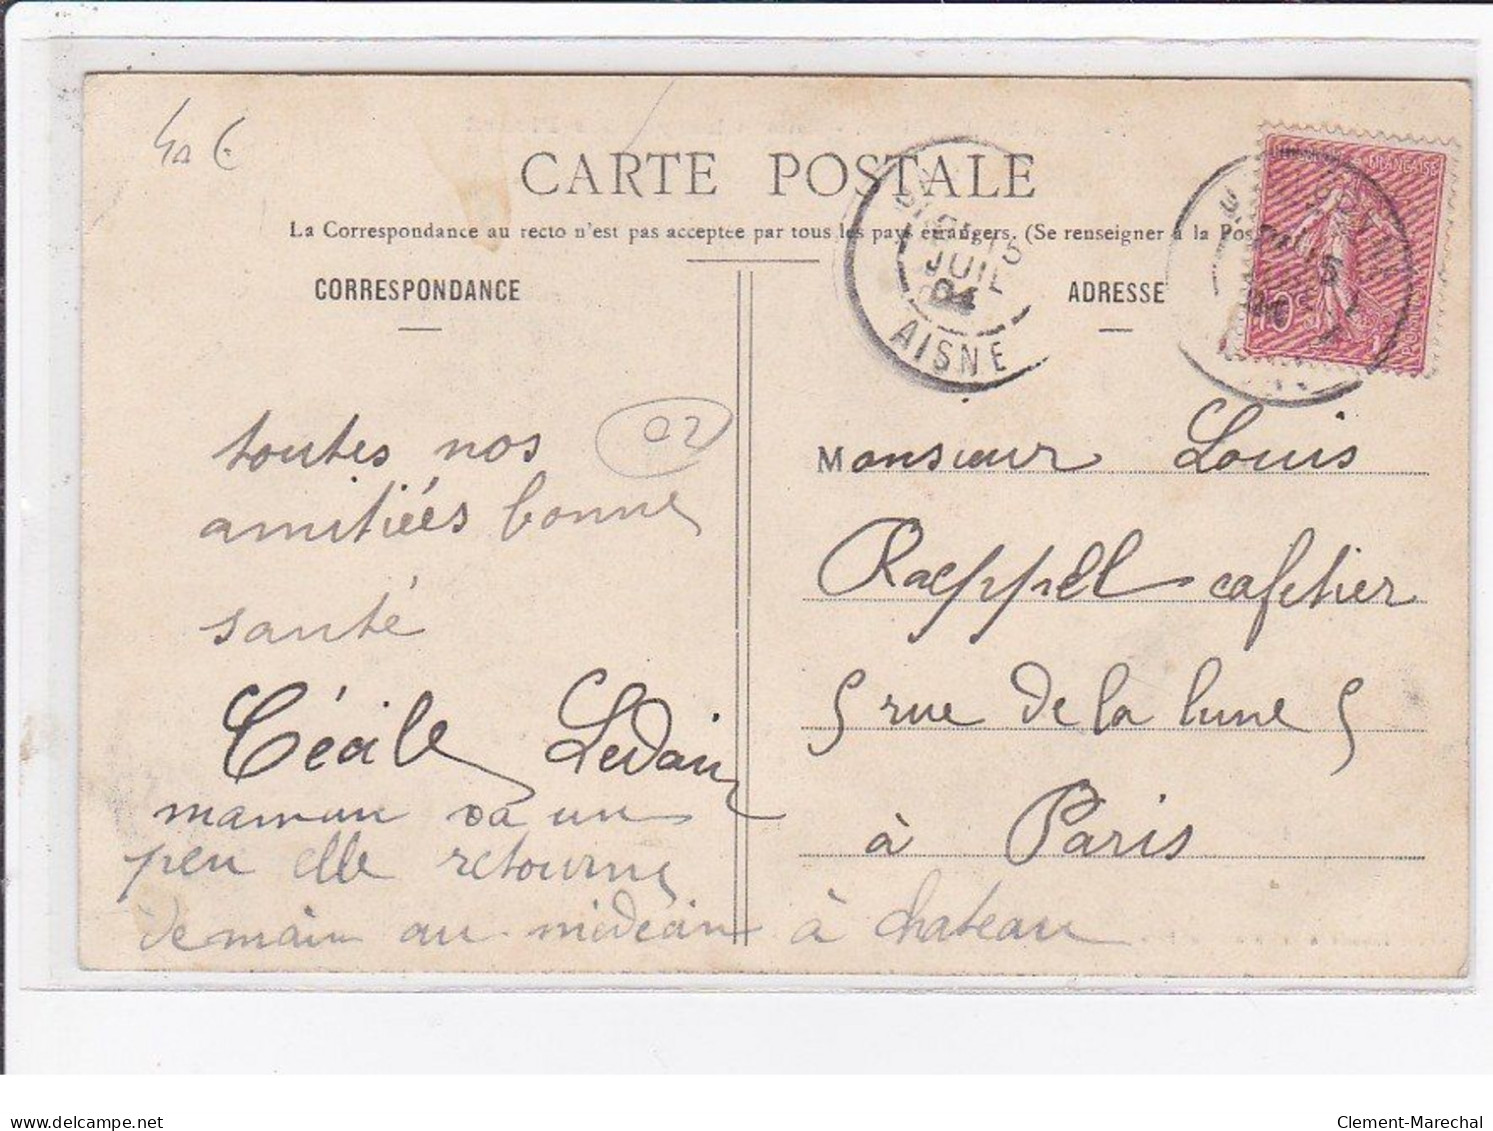 40 €
CARTE POSTALE
La Correspondance au recto n'est pas acceptée par tous les pays étrangers. (Se renseigner à la Pos
CORRESPONDANCE
ADRESSE
JUIL
04
AISNE
FRANÇAISE
10c
02
toutes nos
amitiées bonne
santé
Cécile Ledain
maman va un
peu elle retourne
demain au médecin à chateau
Monsieur Louis
Raeppel cafetier
5 rue de la lune 5
à Paris
delcampe.net
Clement-Marechal